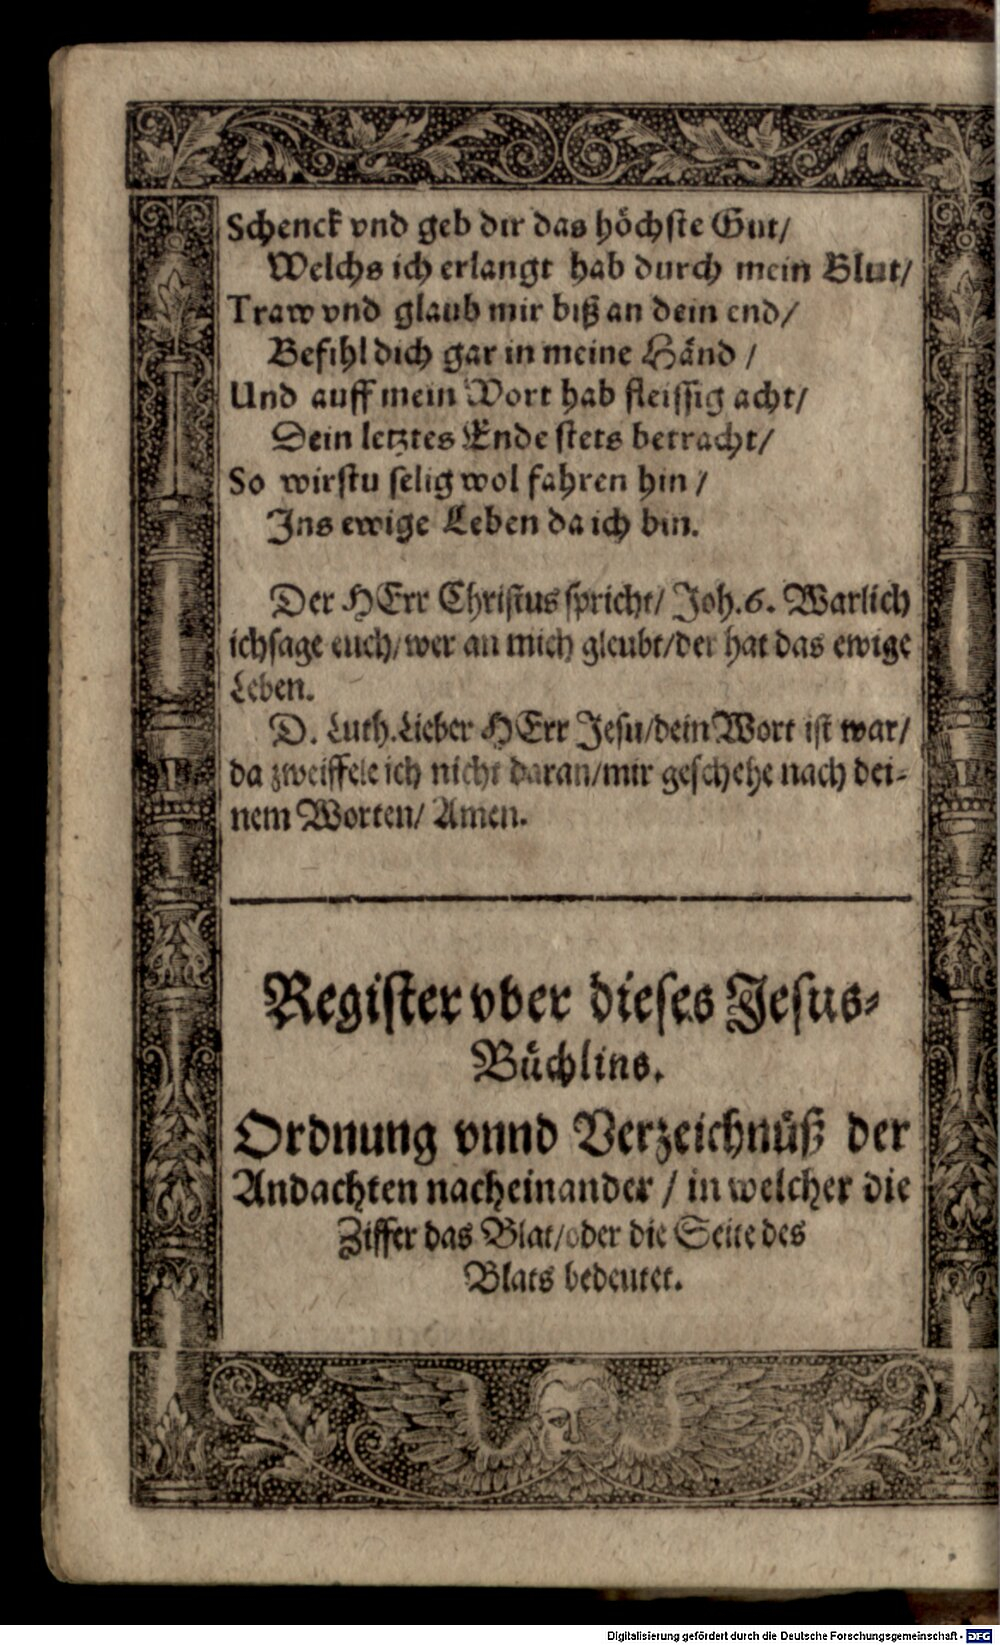 Schenck vnd geb dir das höchste Gut/
Welchs ich erlangt hab durch mein Blut/
Traw vnd glaub mir biß an dein end/
Befihl dich gar in meine Händ /
Und auff mein Wort hab fleissig acht/
Dein letztes Ende stets betracht/
So wirstu selig wol fahren hin /
Ins ewige Leben da ich bin.
Der HErr Christus spricht/ Joh.6. Warlich
ich sage euch/ wer an mich gleubt/ der hat das ewige
Leben.
D. Luth. Lieber HErr Jesu/ dein Wort ist war/
da zweiffele ich nicht daran/ mir geschehe nach dei-
nem Worten/ Amen.
Register vber dieses Jesus-
Büchlins.
Ordnung vnnd Verzeichnüß der
Andachten nacheinander / in welcher die
Ziffer das Blat/ oder die Seite des
Blats bedeutet.
Digitalisierung gefördert durch die Deutsche Forschungsgemeinschaft - DFG